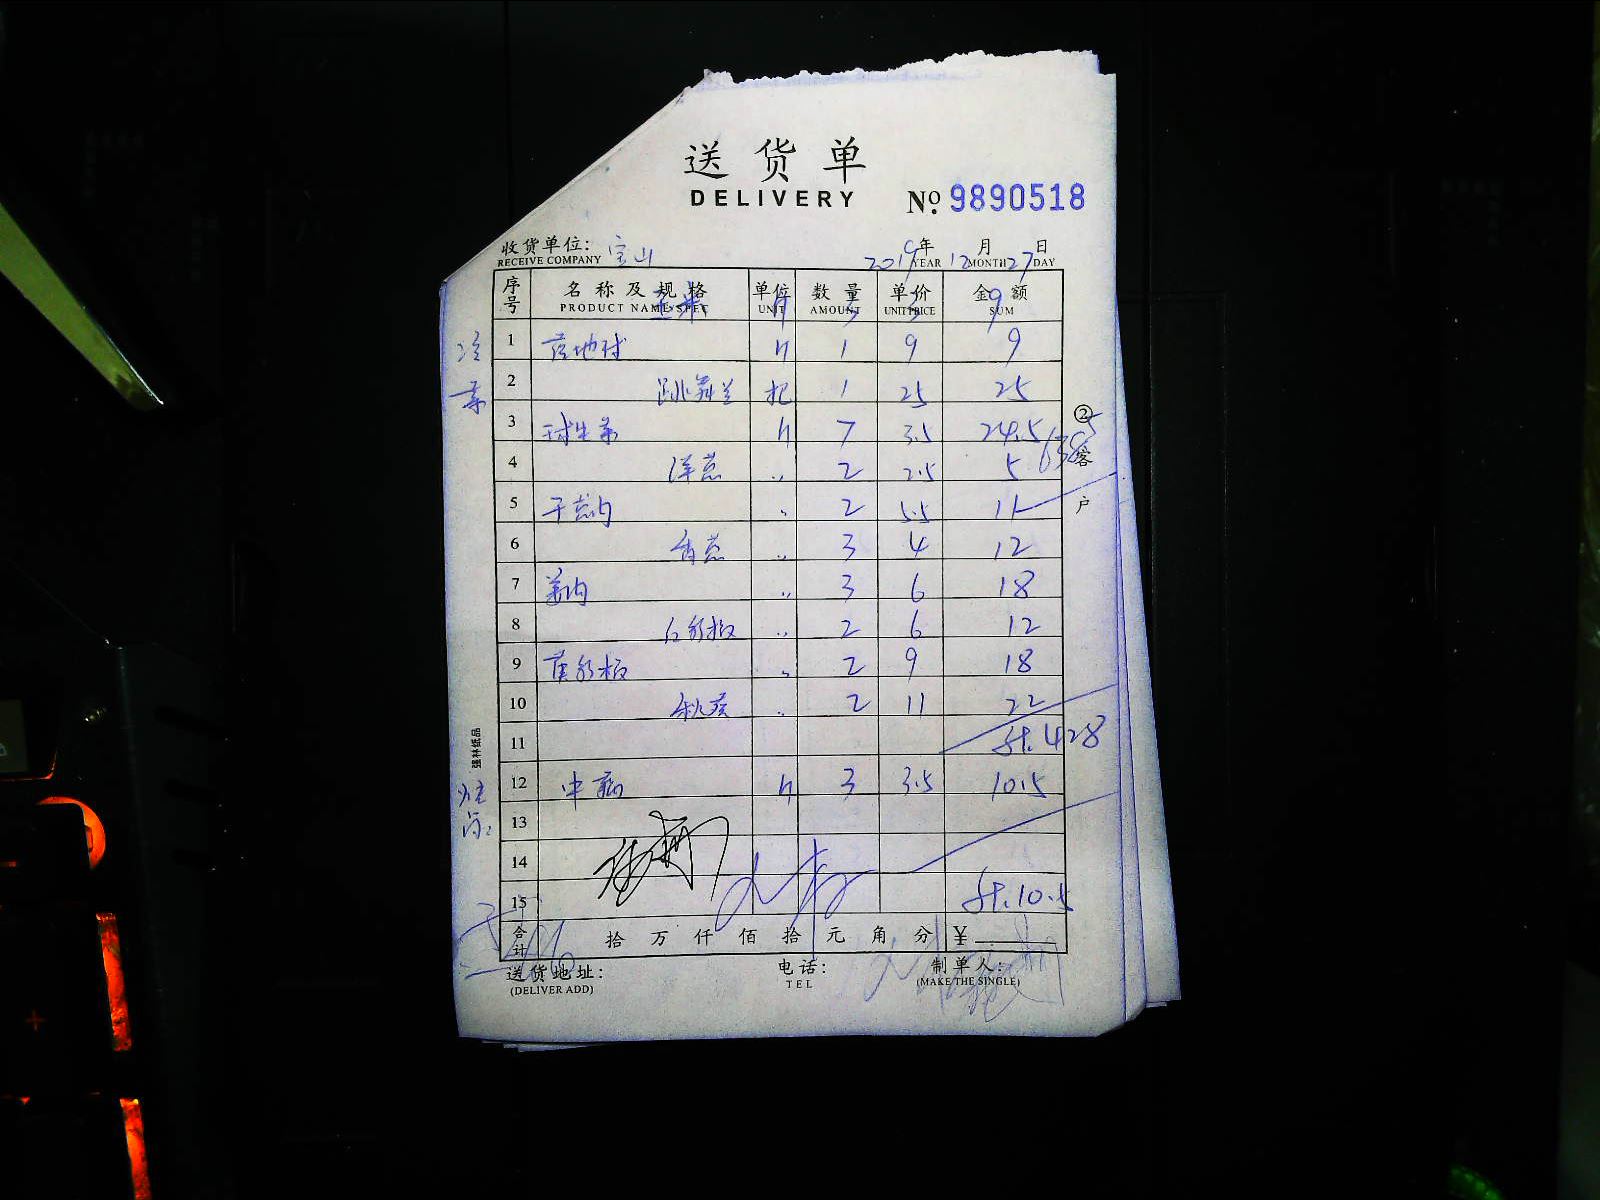 送货单
DELIVERY
No. 9890518
收货单位: 宝山 2019年 12月 27日
RECEIVE COMPANY YEAR MONTH DAY
序号 名称及规格 单位 数量 单价 金额
PRODUCT NAME SPEC UNIT AMOUNT UNIT PRICE SUM
玉米 斤 3 3 9
1 斤 1 9 9
2 把 1 25 25
3 球生菜 斤 7 3.5 24.5
4 洋葱 〃 2 2.5 5
5 干葱肉 〃 2 5.5 11
6 香葱 〃 3 4 12
7 姜肉 〃 3 6 18
8 〃 2 6 12
9 黄彩椒 〃 2 9 18
10 秋葵 〃 2 11 22
11 計.428
12 中菇 斤 3 3.5 10.5
13
14
15 計.10.5
合计 拾 万 仟 佰 拾 元 角 分 ¥
送货地址: 电话: 制单人:
(DELIVER ADD) TEL (MAKE THE SINGLE)
②客户
强林纸品